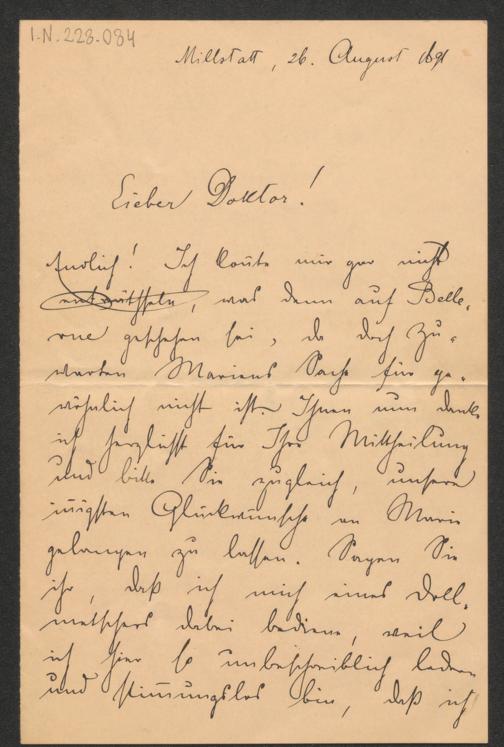 I.N. 228.084
Millstatt, 26. August 1891
Lieber Doktor!
Endlich! Ich konnte mir gar nicht
enträthseln, was denn auf Belle-
vue geschehen sei, da doch Zu-
warten Mariens Sache für ge-
wöhnlich nicht ist. Ihnen nun danke
ich herzlichst für Ihre Mittheilung
und bitte Sie zugleich, unsere
innigsten Glückwünsche an Marie
gelangen zu lassen. Sagen Sie
ihr, daß ich mich eines Doll-
metschers dabei bediene, weil
ich hier so unbeschreiblich ledern
und stimmungslos bin, daß ich